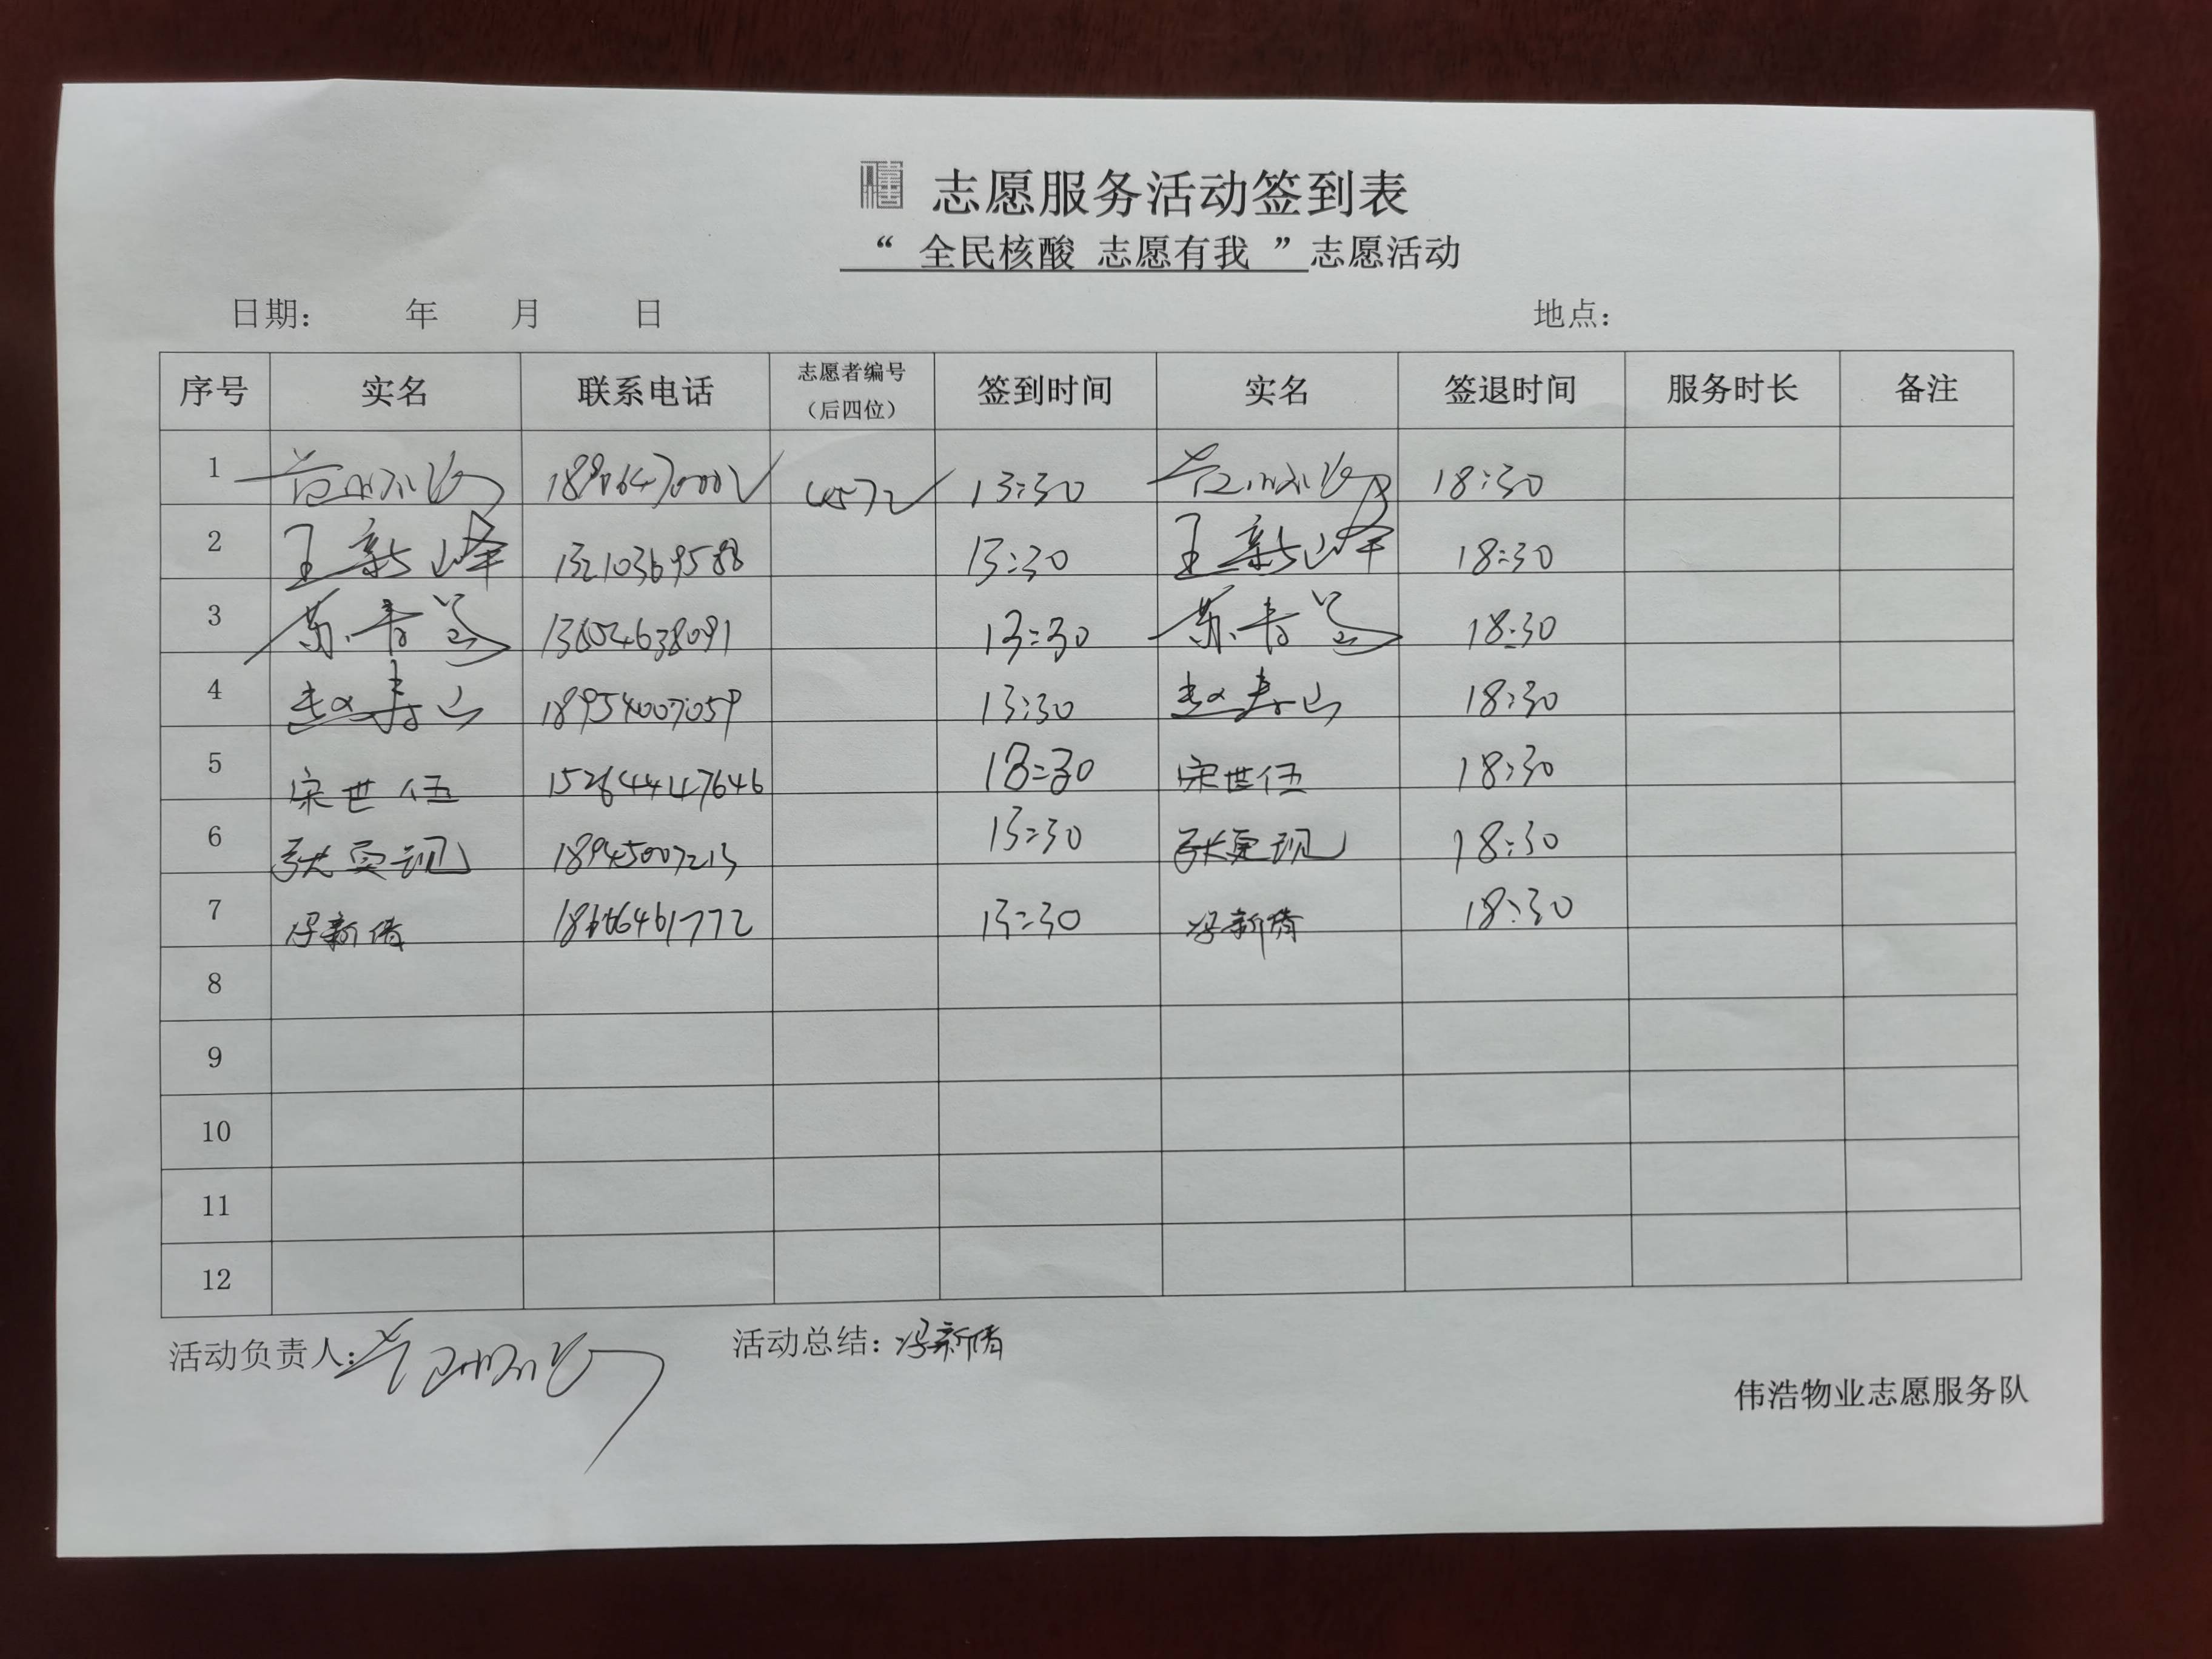 志愿服务活动签到表
“ 全民核酸 志愿有我 ”志愿活动
日期: 年 月 日 地点:
序号 实名 联系电话 志愿者编号（后四位） 签到时间 实名 签退时间 服务时长 备注
1 4572 13:30 18:30
2 王新峰 13210369588 13:30 王新峰 18:30
3 苏寿兰 13:30 苏寿兰 18:30
4 赵寿山 18954007059 13:30 赵寿山 18:30
5 宋世伍 15264447646 13:30 宋世伍 18:30
6 张更现 18945007213 13:30 张更现 18:30
7 冯新倩 18666461772 13:30 冯新倩 18:30
8
9
10
11
12
活动负责人: 活动总结: 冯新倩
伟浩物业志愿服务队